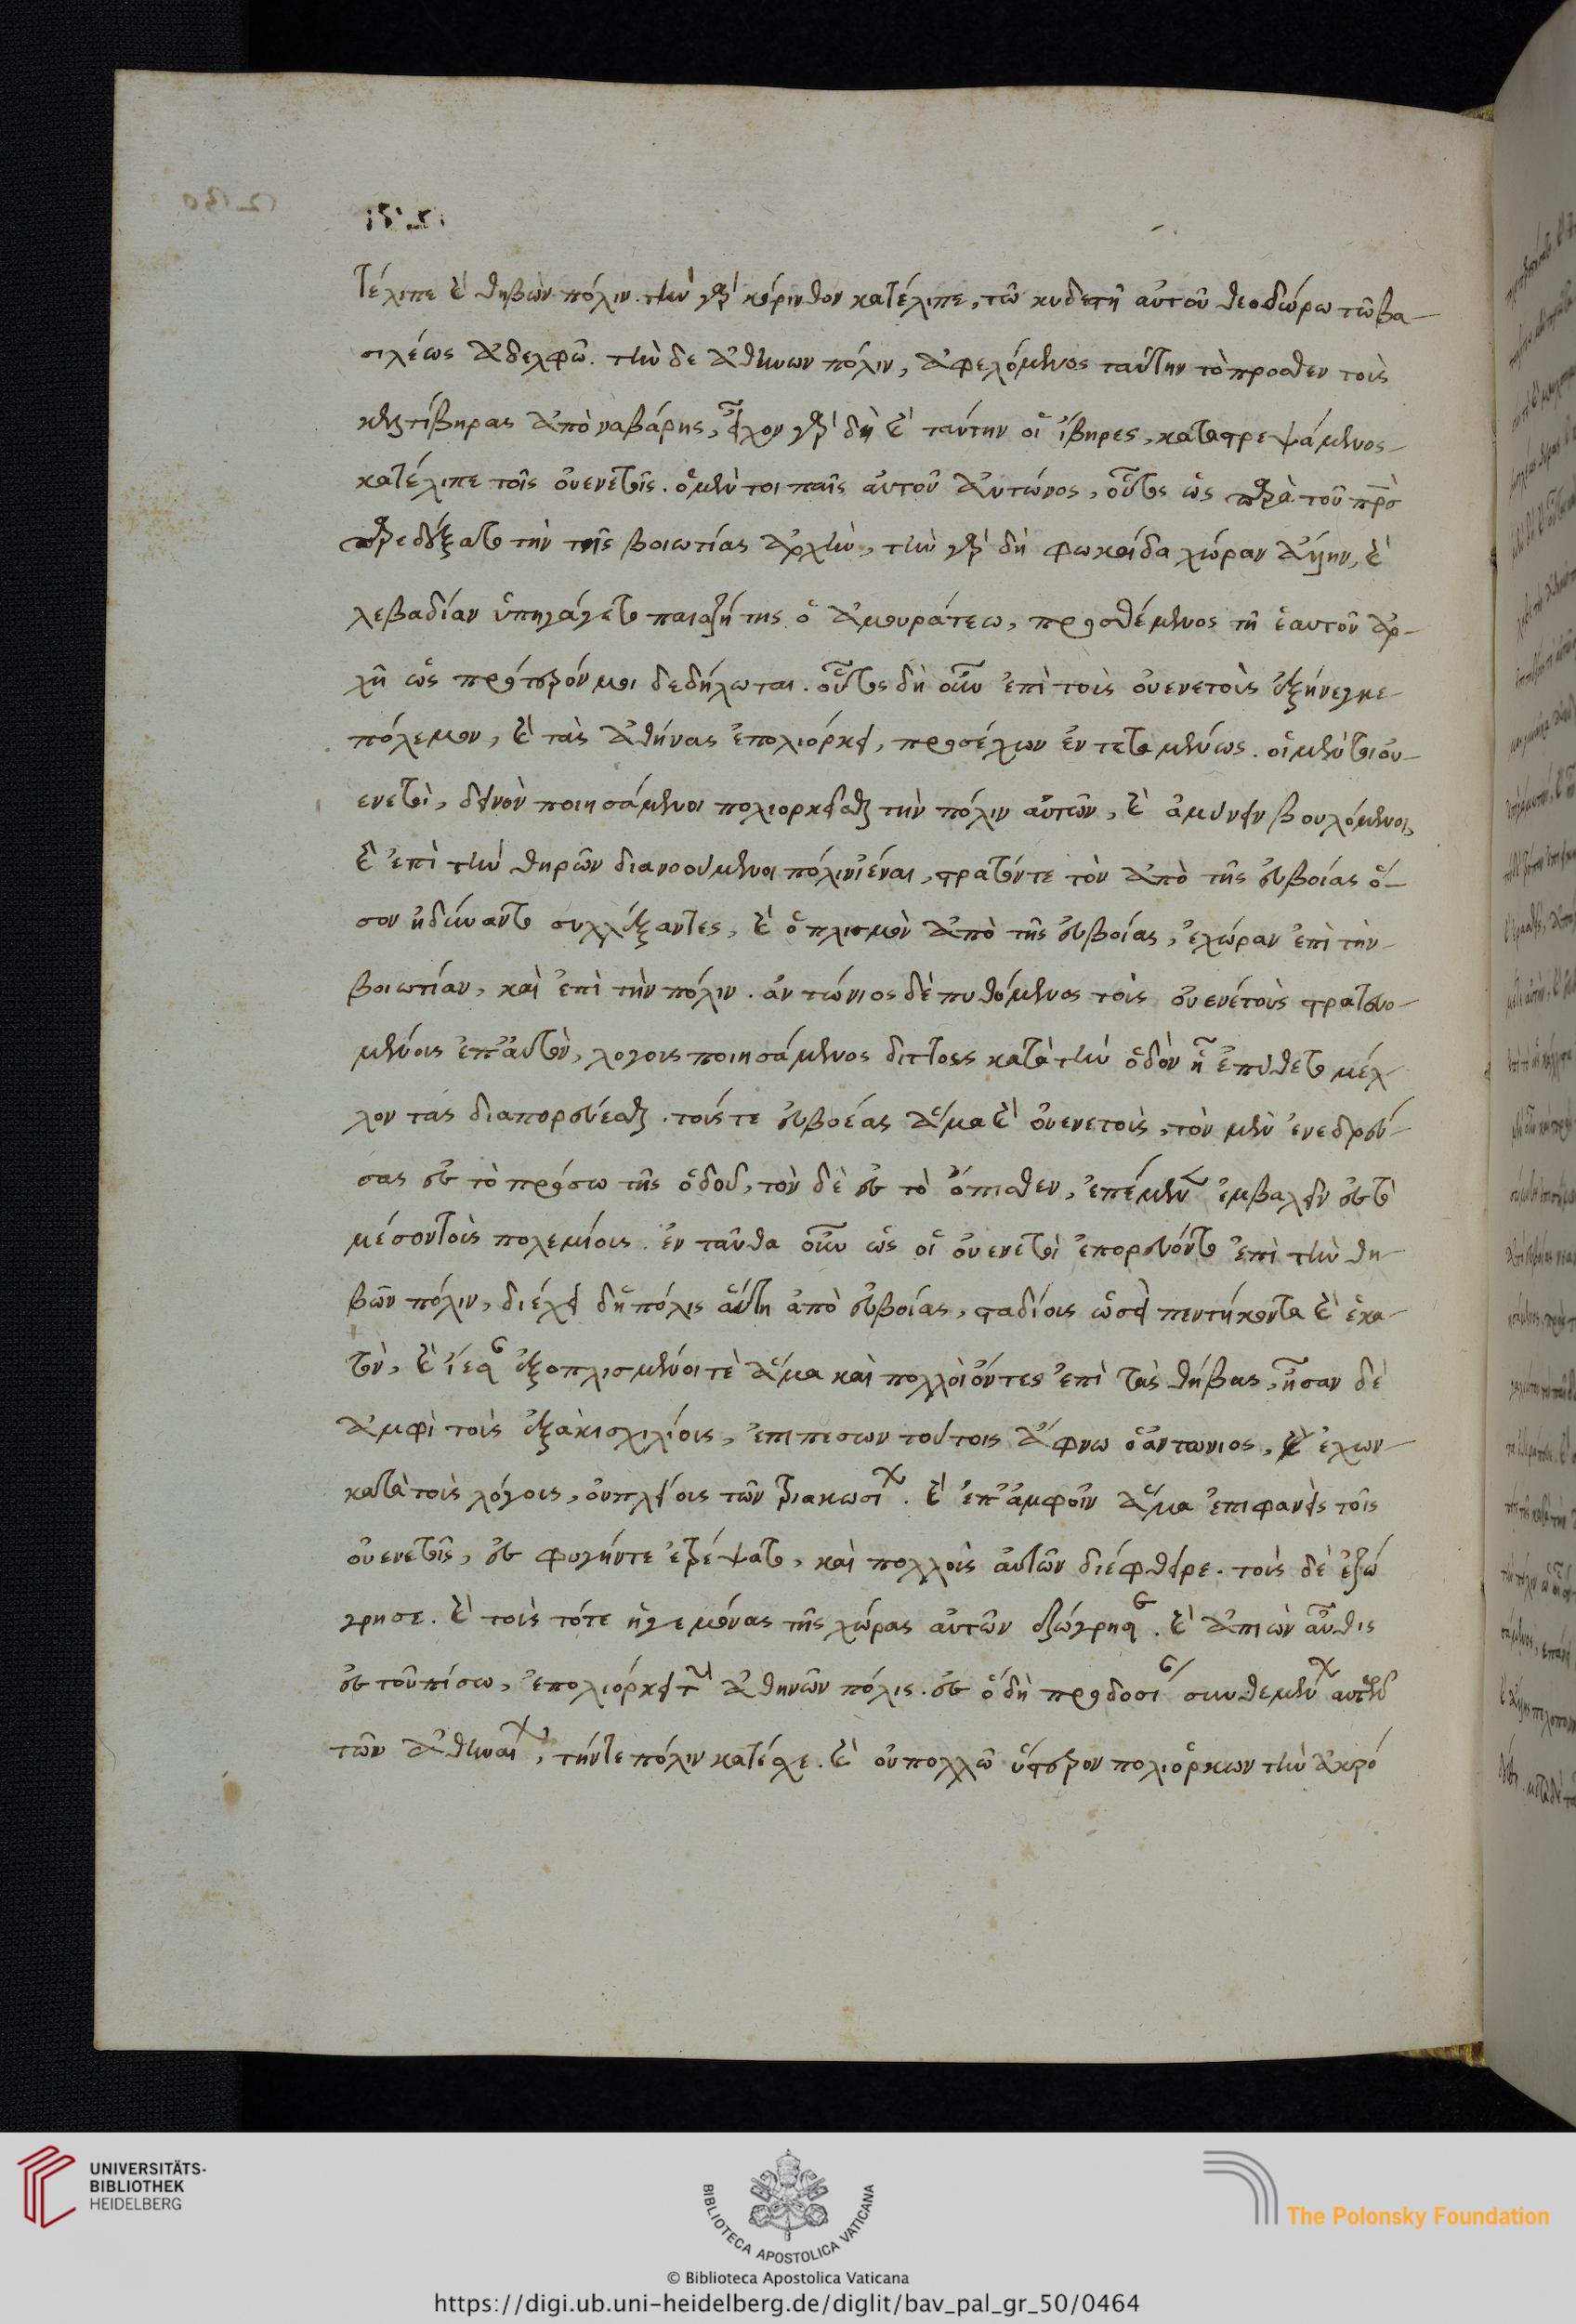 τέλιπε καὶ θηβῶν πόλιν. τὴν γὰρ κόρινθον κατέλιπε, τῶ κηδεστῆ αὐτοῦ θεοδώρω τῶ βα-
σιλέως ἀδελφῶ. τὴν δὲ ἀθηνῶν πόλιν, ἀφελόμενος ταύτην τὸ πρόσθεν τοὺς
κελτίβηρας ἀπὸ ναβάρης, εἶχον γὰρ δὴ καὶ ταύτην οἱ ἴβηρες, καταστρεψάμενος
κατέλιπε τοῖς οὐενετοῖς. ὁ μέν τοι παῖς αὐτοῦ ἀντώνιος, οὗτος ὡς παρὰ τοῦ πρσ
παρεδέξατο τὴν τῆς βοιωτίας ἀρχὴν, τὴν γὰρ δὴ φωκαίδα χώραν, καὶ
λεβαδίαν ὑπηγάγετο παιαζήτης ὁ ἀμουράτεω, προσθέμενος τῆ ἑαυτοῦ ἀρ-
χῆ ὡς πρότερόν μοι δεδήλωται. οὗτος δὴ οὖν ἐπὶ τοὺς οὐενετοὺς ἐξήνεγκε
πόλεμον, καὶ τὰς ἀθήνας ἐπολιόρκει, προσέχων ἐντεταμένως. οἱ μέν τοι οὐ-
ενετοὶ, δεινὸν ποιησάμενοι πολιορκεῖσθαι τὴν πόλιν αὐτῶν, καὶ ἀμύνειν βουλόμενοι,
καὶ ἐπὶ τὴν θηρῶν διανοούμενοι πόλιν ἰέναι, στρατόν τε τὸν ἀπὸ τῆς εὐβοίας ὅ-
σον ἠδύναντο συλλέξαντες, καὶ ὁπλισμὸν ἀπὸ τῆς εὐβοίας, ἐχώραν ἐπὶ τὴν
βοιωτίαν, καὶ ἐπὶ τὴν πόλιν. ἀντώνιος δὲ πυθόμενος τοὺς οὐενέτοὺς στρατευο-
μένους ἐπ' αὐτὸν, λόχους ποιησάμενος διττοὺς κατὰ τὴν ὁδὸν ἧ ἐπύθετο μέλ-
λοντας διαπορεύεσθαι. τούς τε εὐβοέας ἅμα καὶ οὐενετοὺς, τὸν μὲν ἐνεδρεύ-
σας ἐς τὸ πρόσω τῆς ὁδοῦ, τὸν δὲ ἐς τὸ ὄπισθεν, ἐπέμενεν ἐμβαλεῖν ἐς τὸ
μέσον τοὺς πολεμίους. ἐνταῦθα οὖν ὡς οἱ οὐενετοὶ ἐπορεύοντο ἐπὶ τὴν θη-
βῶν πόλιν, διέχει δ' ἡ πόλις αὕτη ἀπὸ εὐβοίας, σταδίους ὡσεὶ πεντήκοντα καὶ ἑκα-
τὸν, καὶ ἵεσ ἐξοπλισμένοι τὲ ἅμα καὶ πολλοὶ ὄντες ἐπὶ τὰς θήβας, ἦσαν δὲ
ἀμφὶ τοὺς ἑξακισχιλίους, ἐπιπεσων τούτοις ἄφνω ὁ ἀντωνιος, καὶ ἔχων
κατὰ τοὺς λόχους, οὐ πλείους τῶν τριακοσίων. καὶ ἐπ' ἀμφοῖν ἅμα ἐπιφανεὶς τοῖς
οὐενετοῖς, ἐς φυγήν τε ἐτρέψατο, καὶ πολλοὺς αὐτῶν διέφθειρε. τοὺς δὲ ἐζώ
γρησε. καὶ τοὺς τότε ἡγεμόνας τῆς χώρας αὐτῶν ἐζώγρησε. καὶ ἀπιὼν αὖθις
ἐς τοῦπίσω, ἐπολιόρκει τὴν ἀθηνῶν πόλιν. ἐς ὃ δὴ προδοσίαν συνθεμένων αὐτῶ
τῶν ἀθηναίων, τήν τε πόλιν κατέσχε. καὶ οὐ πολλῶ ὕστερον πολιορκων τὴν ἀκρό
UNIVERSITÄTS-
BIBLIOTHEK
HEIDELBERG
BIBLIOTECA APOSTOLICA VATICANA
The Polonsky Foundation
© Biblioteca Apostolica Vaticana
https://digi.ub.uni-heidelberg.de/diglit/bav_pal_gr_50/0464